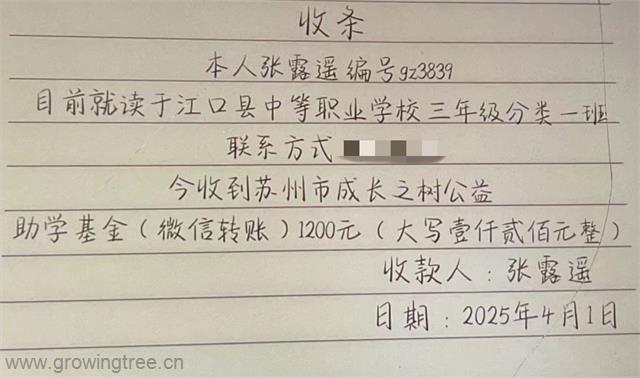 收条
本人张露遥编号gz3839
目前就读于江口县中等职业学校三年级分类一班
联系方式
今收到苏州市成长之树公益
助学基金（微信转账）1200元（大写壹仟贰佰元整）
收款人：张露遥
日期：2025年4月1日
www.growingtree.cn